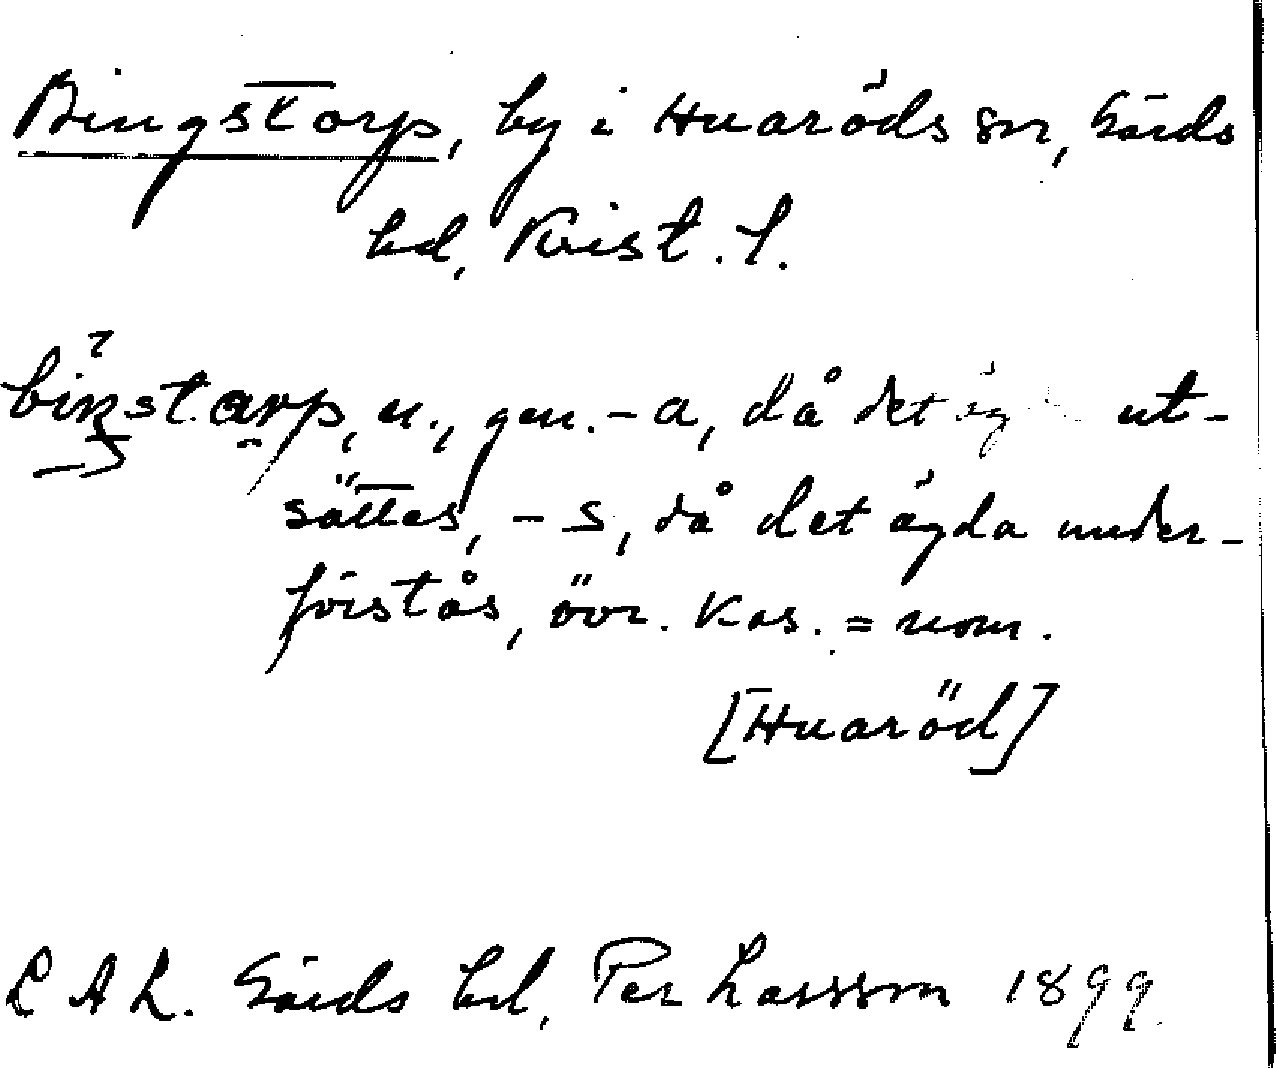 Bingstorp, by i Huaröds sn, Gärds
hd, Krist. l.
biŋstarp, n., gen. -a, då det äg ut-
sättes, -s, då det ägda under-
förstås, övr. kas. = nom.
[Huaröd]
LAL. Gärds hd, Per Larsson 1899.